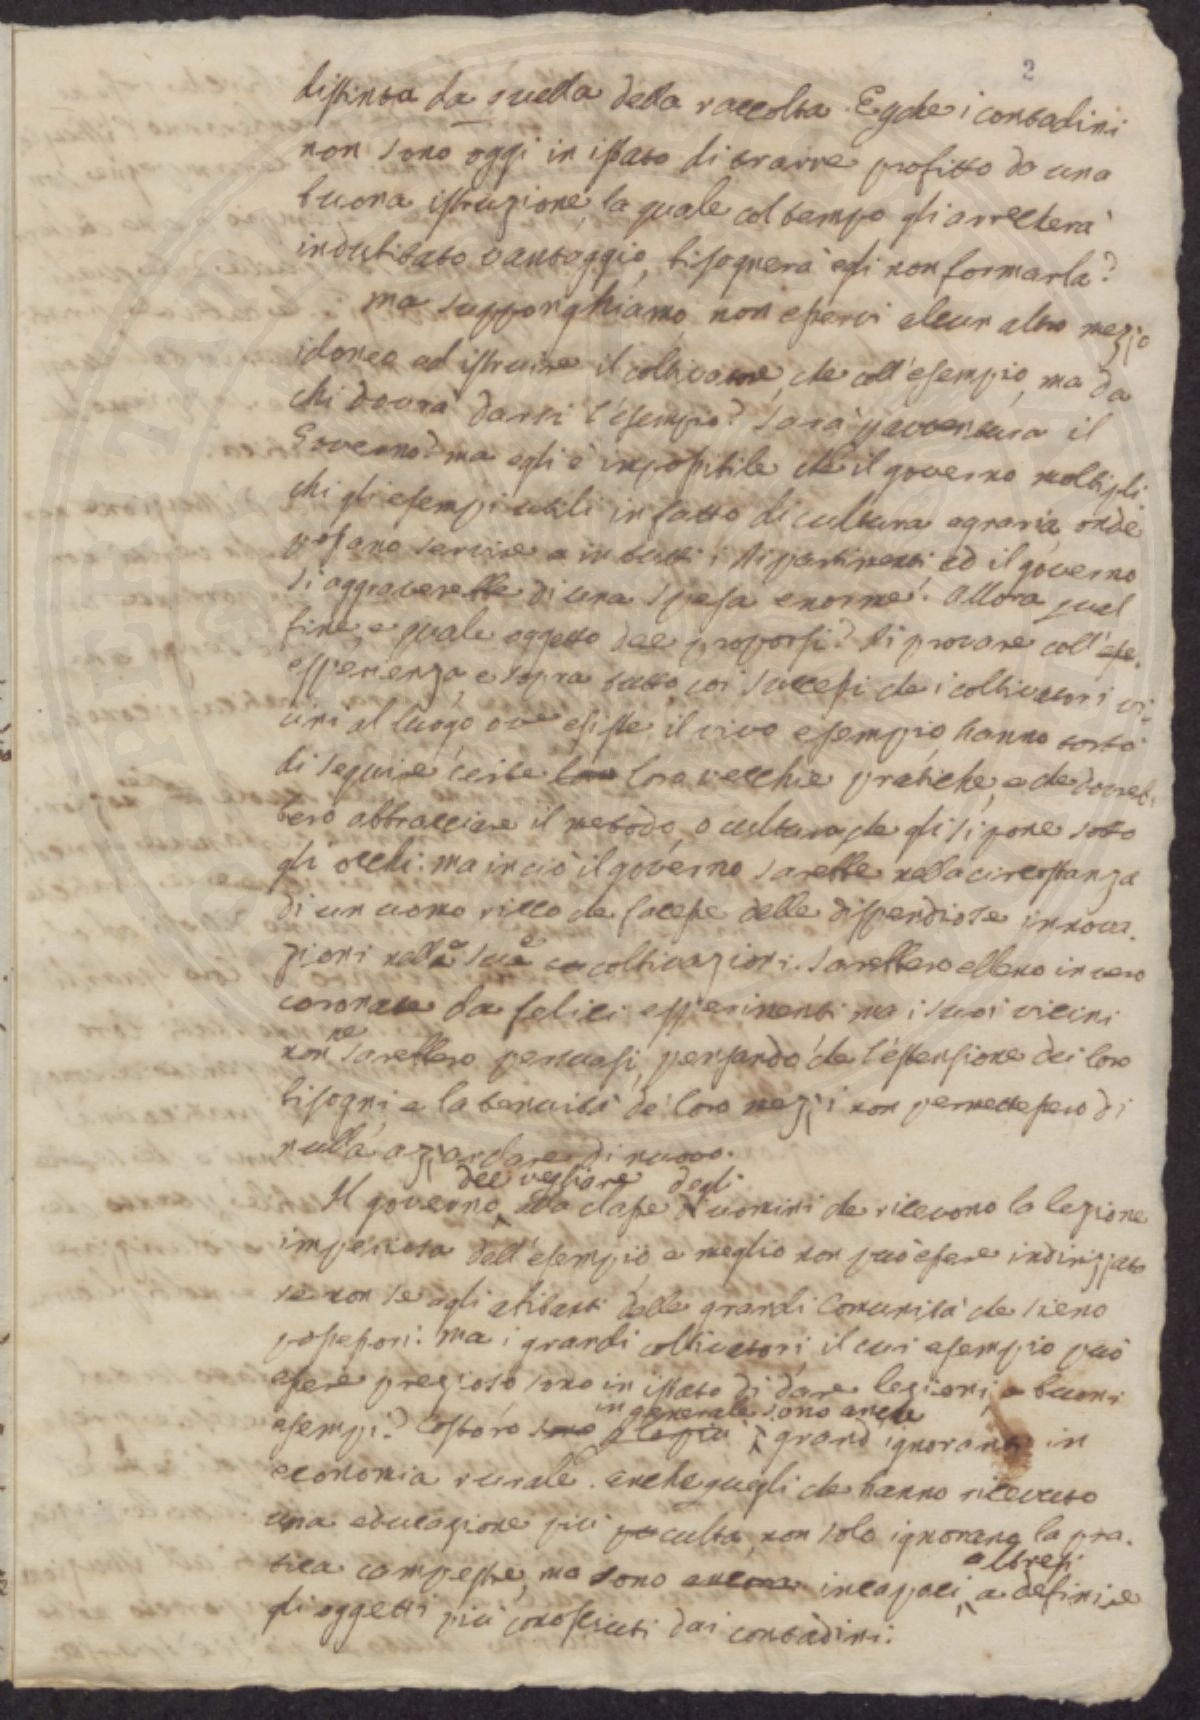 2
distinta da quella della raccolta. E che i contadini
non sono oggi in istato di trarre profitto da una
buona istruzione, la quale col tempo gli arrecherà
indubitato vantaggio, bisognerà egli non formarla?
ma supponghiamo non esservi alcun altro mezzo
idoneo ad istruire il coltivatore, che coll'esempio, ma da
chi dovrà darsi l'esempio? Sarà pavventura il
Governo? ma egli è impossibile che il governo moltipli
chi gli esempi utili in fatto di cultura agraria, onde
possano servire a in tutti i dipartimenti ed il governo
si aggraverebbe di una spesa enorme. Allora qual
fine, e quale oggetto dee proporsi? di provare coll'espe.
esperienza, e sopra tutto coi successi che i coltivatori vi-
cini al luogo ove esiste il vivo esempio, hanno torto
di seguire certe loro loro vecchie pratiche, e che dovreb.
bero abbracciare il metodo, o cultura che gli si pone sotto
gli occhi. ma in ciò il governo sarebbe nella circostanza
di un uomo ricco che facesse delle dispendiose innova.
zioni nelle sue coltivazioni. Sarebbero elleno in vero
coronate da felici esperimenti ma i suoi vicini
non ne sarebbero persuasi, pensando che l'estensione dei loro
bisogni, e la tenuità de' loro mezzi non permettessero di
nulla azzardare di nuovo.
dee vegliare degli
Il governo, alla classe d'uomini che ricevono la lezione
imperiosa dell'esempio, e meglio non può essere indirizzato
se non se agli abitanti delle grandi Comunità che sieno
possessori. ma i grandi coltivatori, il cui esempio può
essere prezioso sono in istato di dare lezioni, e buoni
in generale sono anche
esempi? Costoro sono grand'ignoranti in
economia rurale. anche quegli che hanno ricevuto
una educazione più culta, non solo ignorano la pra.
altresì
tica campestre, ma sono ancora incapaci, a definire
gli oggetti più conosciuti dai contadini.